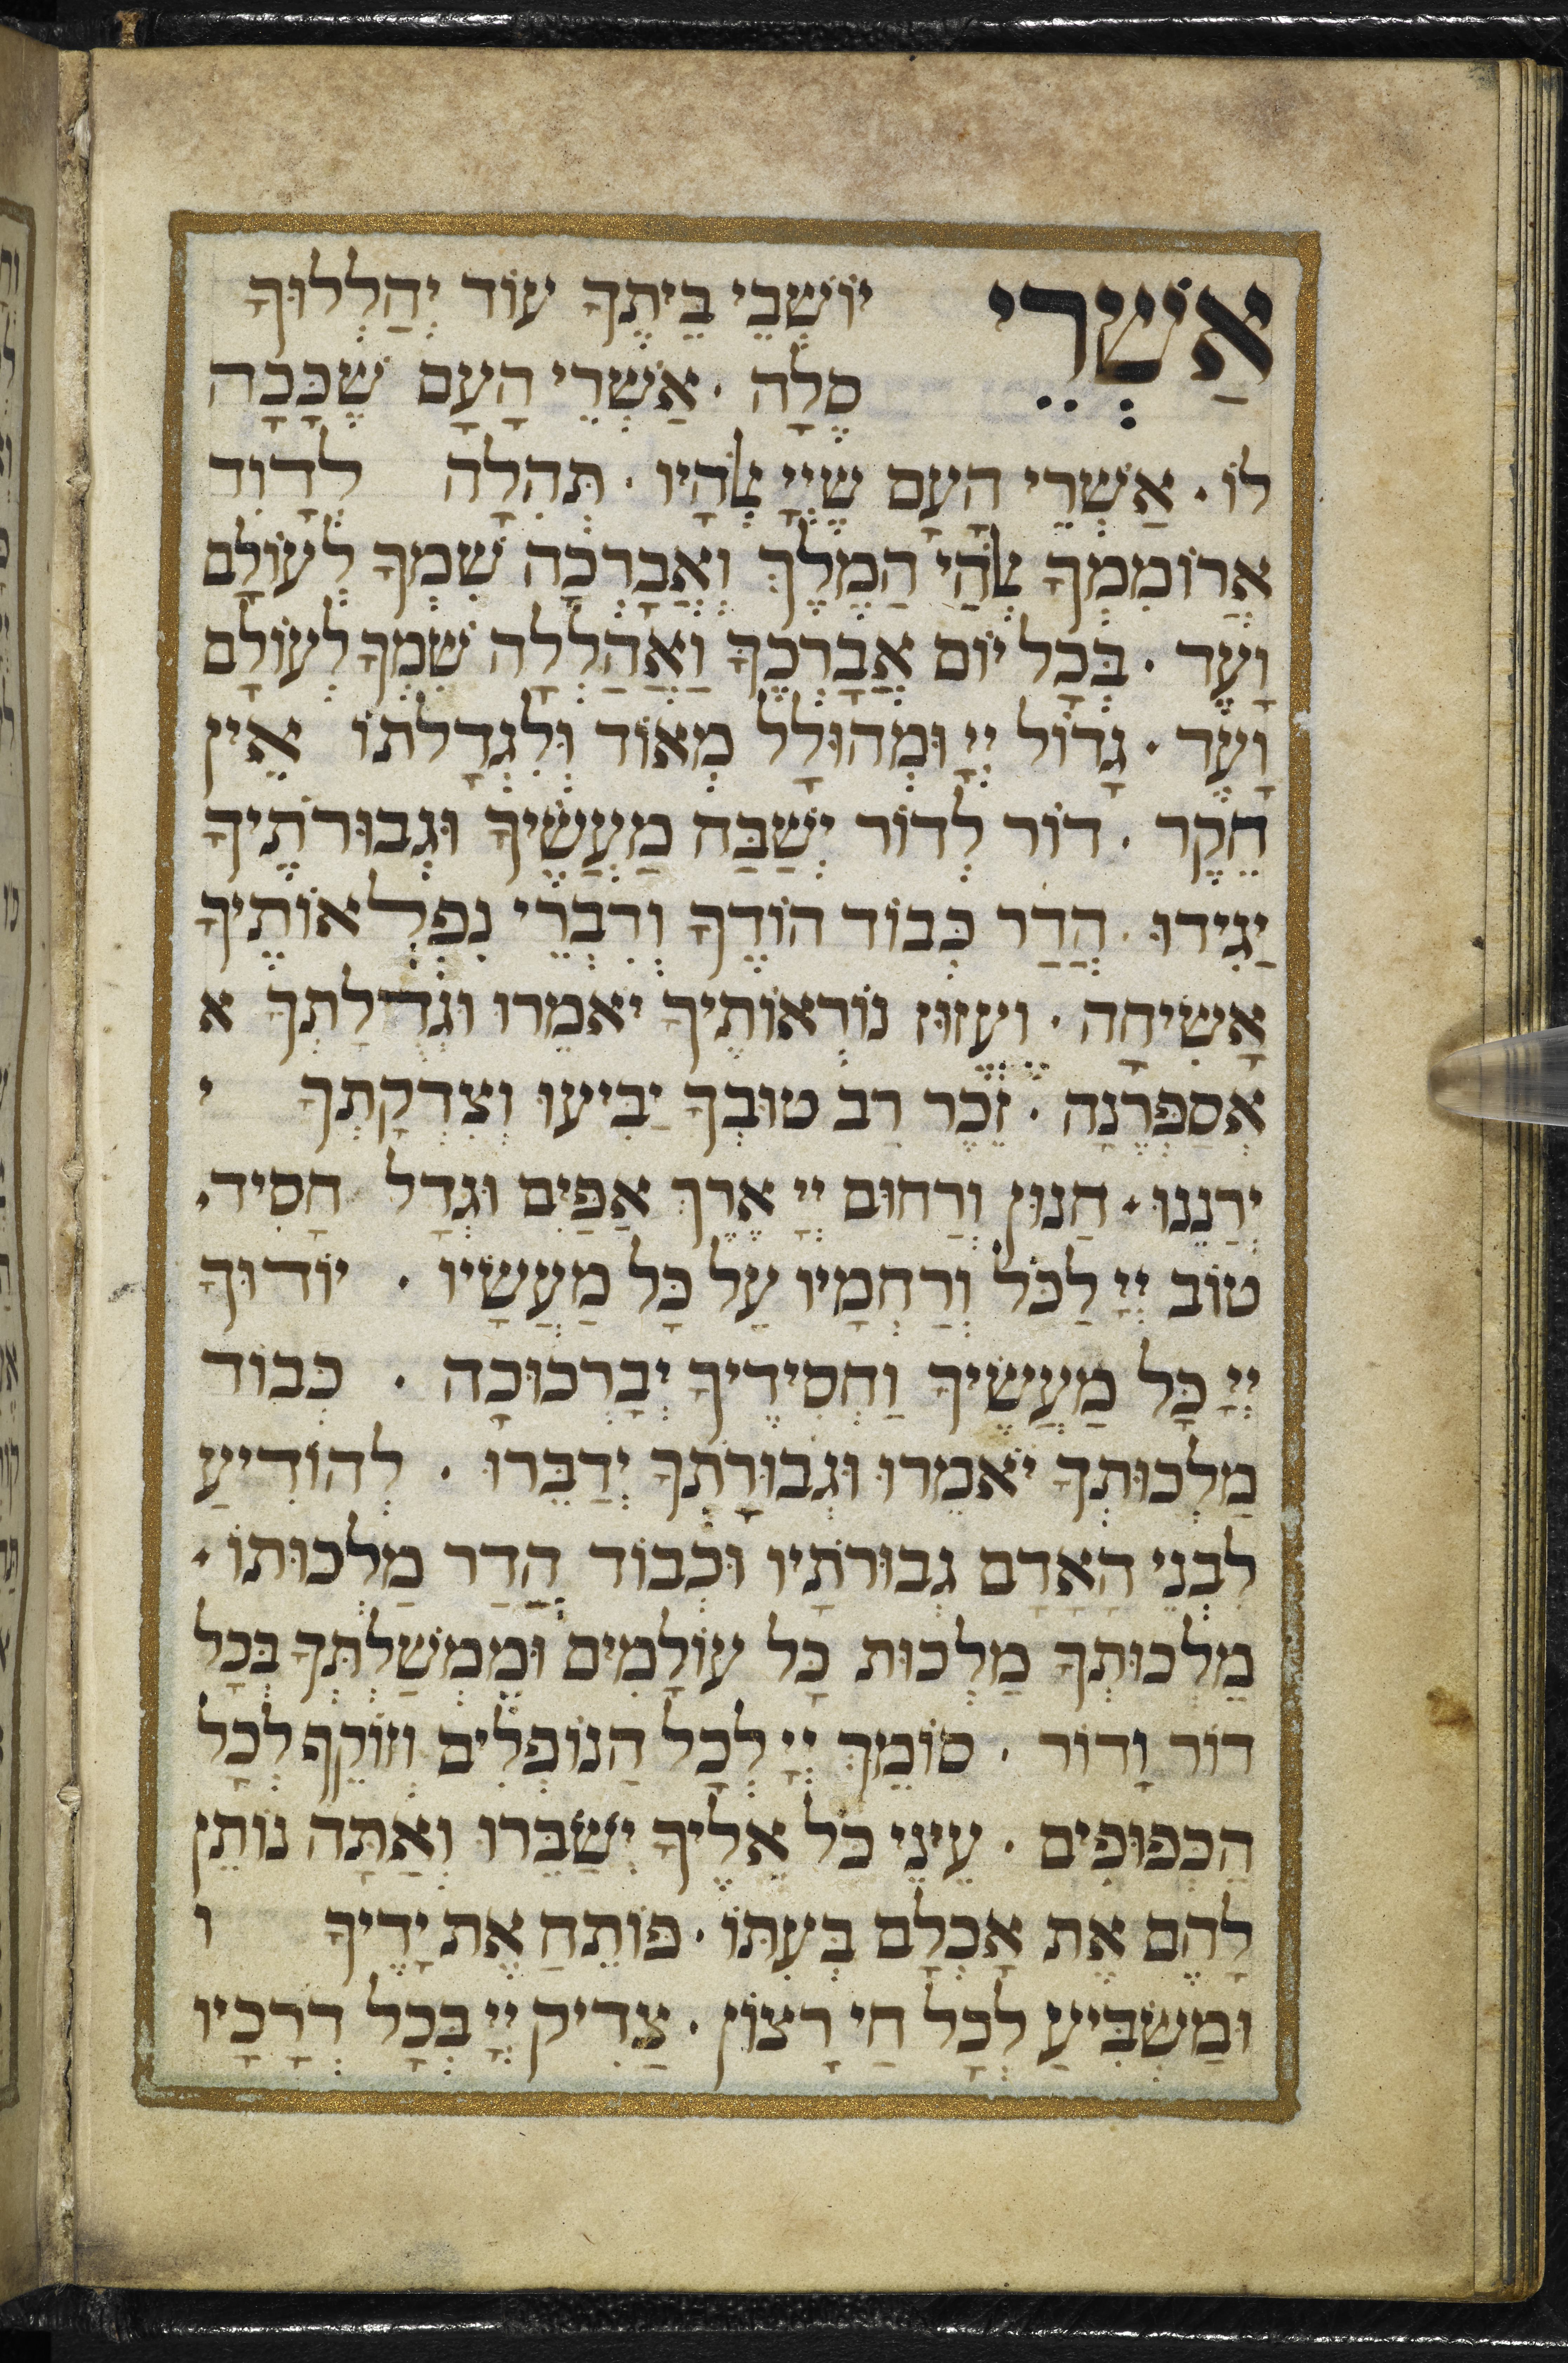 אַשְׁרֵי יוֹשְׁבֵי בֵיתֶךָ עוֹד יְהַלְלוּךָ
סֶלָה · אַשְׁרֵי הָעָם שֶׁכָּכָה
לוֹ · אַשְׁרֵי הָעָם שֶׁיְיָ אֱלֹהָיו · תְּהִלָּה לְדָוִד
אֲרוֹמִמְךָ אֱלֹהַי הַמֶּלֶךְ וַאֲבָרְכָה שִׁמְךָ לְעוֹלָם
וָעֶד · בְּכָל יוֹם אֲבָרְכֶךָּ וַאֲהַלְלָה שִׁמְךָ לְעוֹלָם
וָעֶד · גָּדוֹל יְיָ וּמְהוּלָל מְאוֹד וְלִגְדֻלָתוֹ אֵין
חֵקֶר · דּוֹר לְדוֹר יְשַׁבַּח מַעֲשֶׂיךָ וּגְבוּרֹתֶיךָ
יַגִּידוּ · הֲדַר כְּבוֹד הוֹדֶךָ וְדִבְרֵי נִפְלְאוֹתֶיךָ
אָשִׂיחָה · ועֶזוּז נוֹרְאוֹתֶיךָ יֹאמֵרוּ וּגְדֻלָתְךָ א
אֲסַפְּרֶנָה · זֵכֶר רַב טוּבְךָ יַבִּיעוּ וְצִדְקָתְךָ י
יְרַנֵנוּ · חַנוּן וְרַחוּם יְיָ אֶרֶךְ אַפַּיִם וּגְדָל חָסִיד ·
טוֹב יְיָ לַכֹּל וְרַחְמָיו עַל כָּל מַעֲשָׂיו · יוֹדוּךָ
יְיָ כָּל מַעֲשֶׂיךָ וַחְסִידֶיךָ יְבָרְכוּכָה · כְּבוֹד
מַלְכוּתְךָ יֹאמֵרוּ וּגְבוּרָתְךָ יְדַבֵּרוּ · לְהוֹדִיעַ
לִבְנֵי הָאָדָם גְבוּרֹתָיו וּכְבוֹד הֲדַר מַלְכוּתוֹ ·
מַלְכוּתְךָ מַלְכוּת כָּל עוֹלָמִים וּמֶמְשַׁלְתְּךָ בְּכָל
דּוֹר וָדוֹר · סוֹמֵךְ יְיָ לְכָל הַנּוֹפְלִים וְזוֹקֵף לְכָל
הַכְּפוּפִים · עֵינֵי כֹל אֵלֶיךָ יְשַׂבֵּרוּ וְאַתָּה נוֹתֵן
לָהֶם אֶת אָכְלָם בְּעִתּוֹ · פּוֹתֵחַ אֶת יָדֶיךָ ו
וּמַשְׂבִּיעַ לְכָל חַי רָצוֹן · צַדִּיק יְיָ בְּכָל דְּרָכָיו